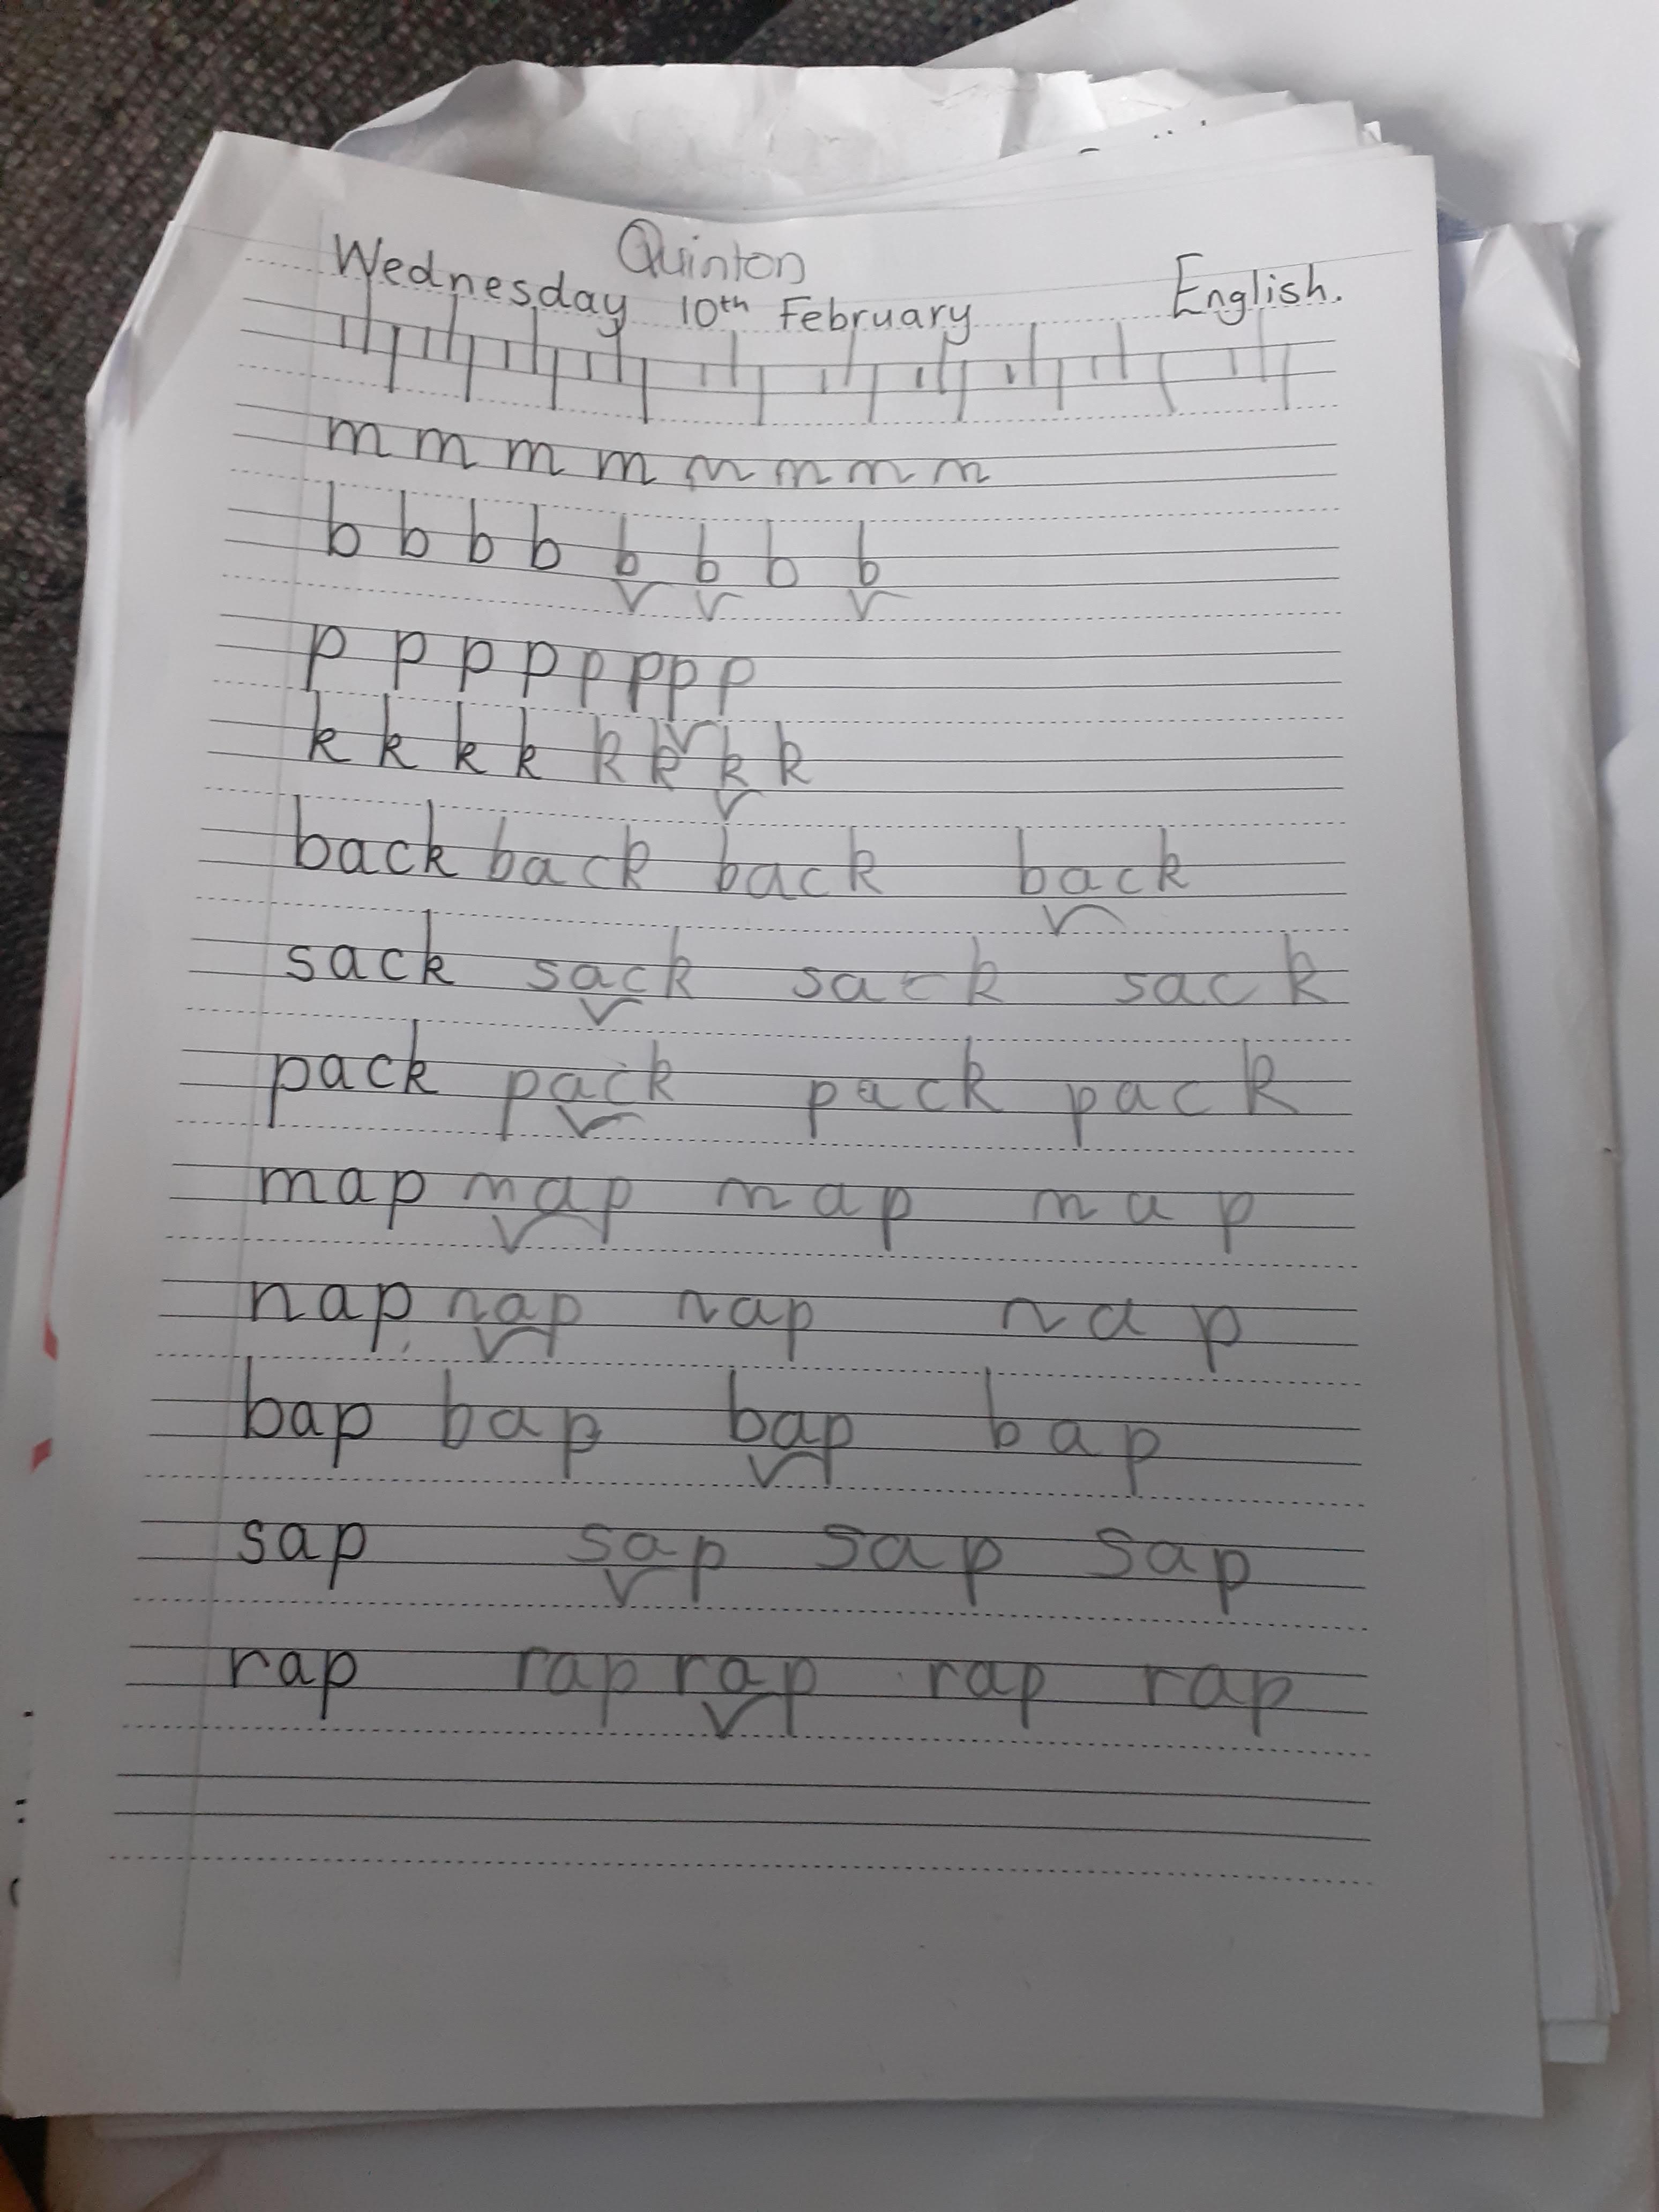 Quinton
Wednesday 10th February English.
m m m m m m m m
b b b b b b b b
p p p p p p p p
k k k k k k k k
back back back back
sack sack sack sack
pack pack pack pack
map map map map
nap nap nap nap
bap bap bap bap
sap sap sap sap
rap rap rap rap rap